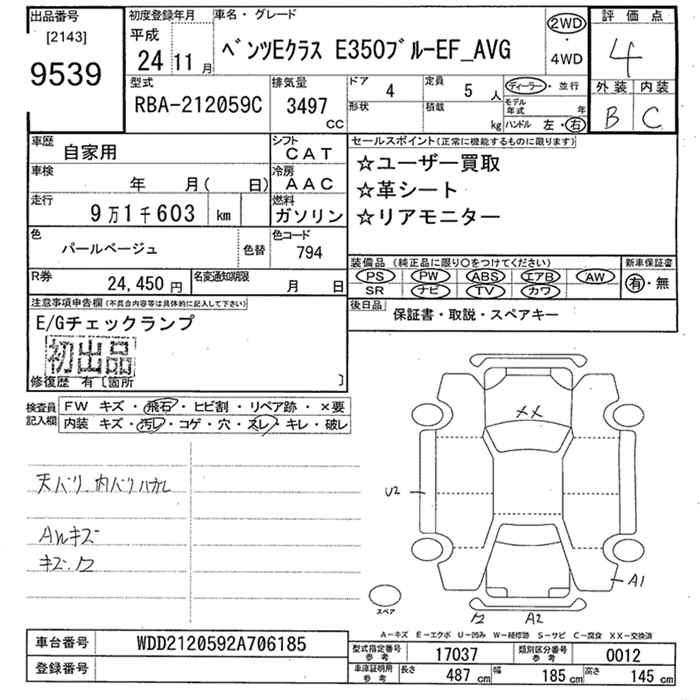 出品番号
[2143]
9539
初度登録年月
平成
24 11月
車名・グレード
ベンツEクラス E350ブルーEF_AVG
2WD
・
4WD
評価点
4
外装 内装
B C
型式
RBA-212059C
排気量
3497
CC
ドア
4
定員
5 人
形状
積載
kg
ディーラー・並行
モデル年式 年
ハンドル 左・右
車歴
自家用
シフト
CAT
車検
年 月( 日)
冷房
AAC
走行
9万1千603 km
燃料
ガソリン
色
パールベージュ
色替
色コード
794
R券
24,450 円
名変通知期限
月 日
セールスポイント(正常に機能するものに限ります)
☆ユーザー買取
☆革シート
☆リアモニター
装備品 (純正品に限り○をつけてください)
PS PW ABS エアB AW
SR ナビ TV カワ
新車保証書
有・無
後日品
保証書・取説・スペアキー
注意事項申告欄(不具合内容等は具体的に記入して下さい)
E/Gチェックランプ
初出品
修復歴 有〔箇所 〕
検査員記入欄
FW キズ・飛石・ヒビ割・リペア跡・×要
内装 キズ・汚レ・コゲ・穴・スレ・キレ・破レ
天バリ、内バリハガレ
AWキズ
キズ、ワ
XX
U2
A1
ワ
A2
スペア
A-キズ E-エクボ U-凹み W-補修跡 S-サビ C-腐食 XX-交換済
車台番号
WDD2120592A706185
登録番号
型式指定番号参考
17037
類別区分番号参考
0012
車庫証明用参考
長さ 487 cm 幅 185 cm 高さ 145 cm